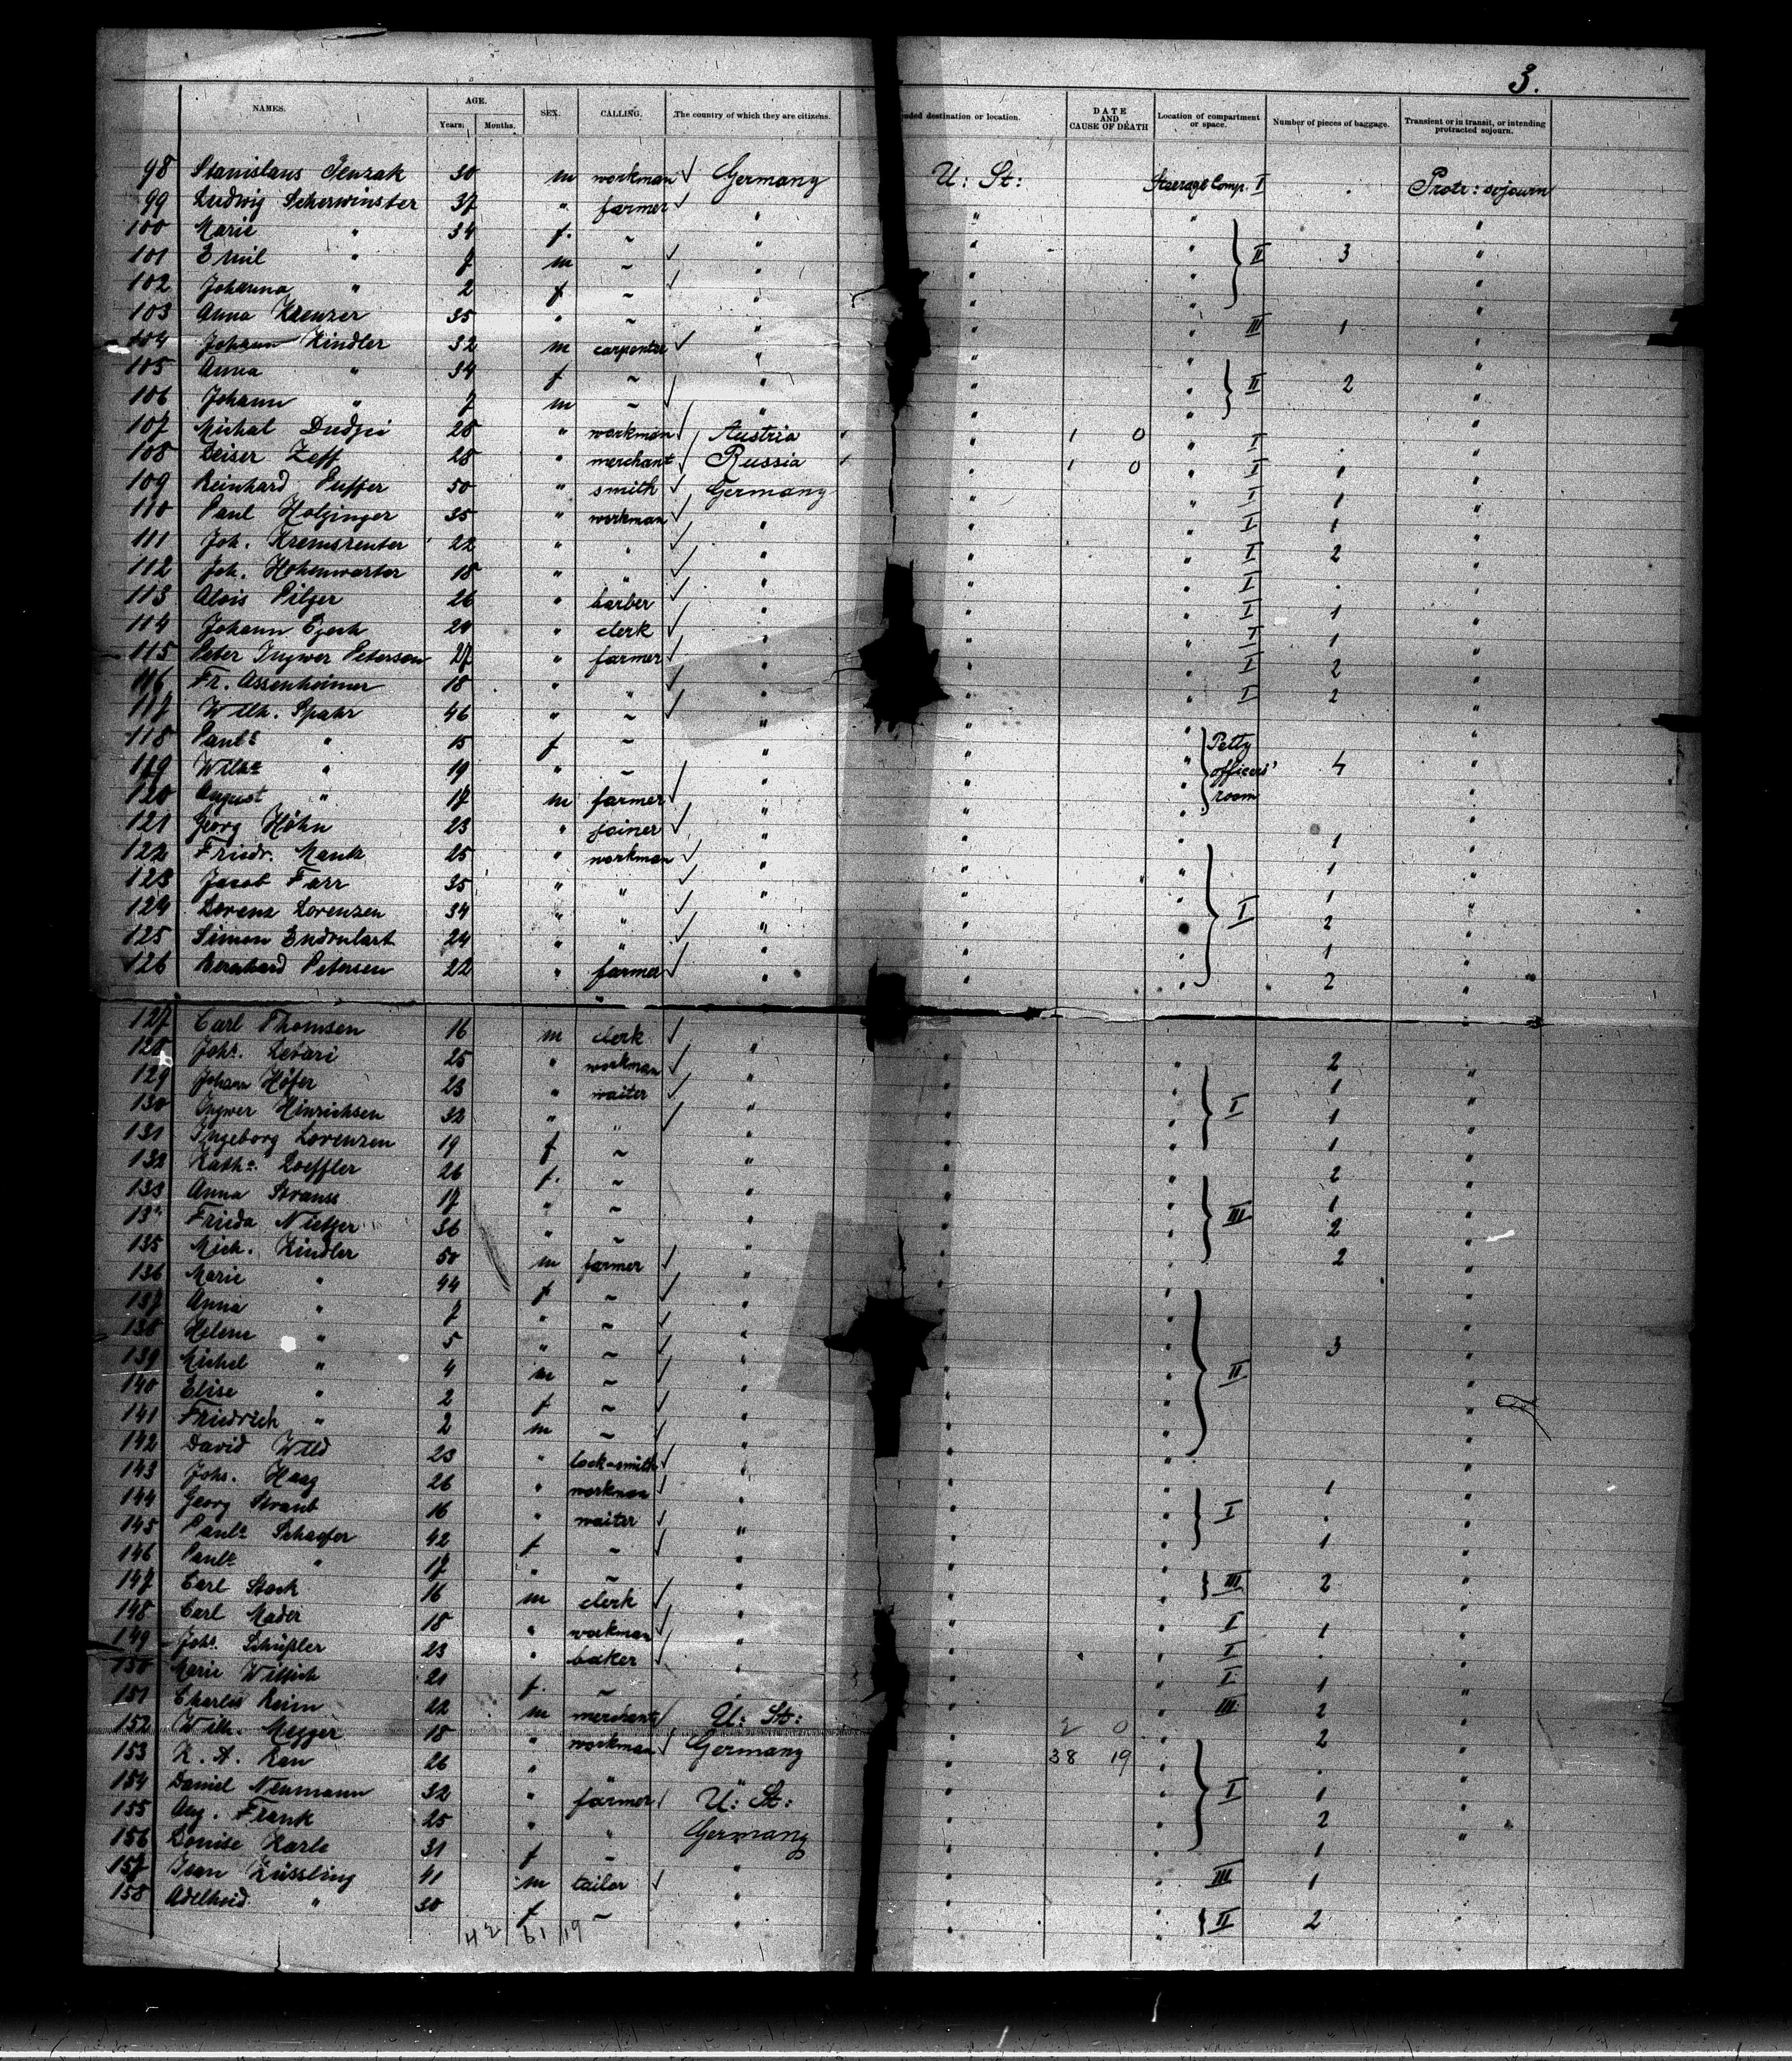 3.
NAMES. AGE. SEX. CALLING. The country of which they are citizens. nded destination or location. DATE AND CAUSE OF DEATH Location of compartment or space. Number of pieces of baggage. Transient or in transit, or intending protracted sojourn.
Years. Months.
98 Stanislaus 30 m workman ✓ Germany U: St: Steerage Comp. I . Protr: sojourn
99 Ludwig Scherwinster 37 " farmer ✓ " " " "
100 Marie " 34 f. ~ " " " II 3 "
101 Emil " 7 m ~ ✓ " " " "
102 Johanna " 2 f ~ ✓ " " " "
103 Anna Krenzer 35 " ~ " " " III 1 "
104 Johann Kindler 32 m carpenter ✓ " " " "
105 Anna " 34 f ~ " " " II 2 "
106 Johann " 7 m ~ ✓ " " " "
107 Michal 28 " workman ✓ Austria " 1 0 " I . "
108 Leiser Zeff 28 " merchant ✓ Russia " 1 0 " I 1 "
109 Reinhard Puffer 50 " smith ✓ Germany " " I 1 "
110 Paul Holzinger 35 " workman ✓ " " " I 1 "
111 Joh. Kremsreuter 22 " " ✓ " " " I 2 "
112 Joh. Hohenwarter 18 " " ✓ " " " I . "
113 Alois Pilger 26 " barber ✓ " " " I 1 "
114 Johann 24 " clerk ✓ " " " I 1 "
115 Peter Ingwer Petersen 27 " farmer ✓ " " " I 2 "
116 Fr. Assenheimer 18 " " ✓ " " " I 2 "
117 Wilh. Spahr 46 " ~ ✓ " " " "
118 Paul.e " 15 f ~ " " " Petty "
119 Wilh.e " 19 " ~ " " " officers' 4 "
120 August " 17 m farmer ✓ " " " room "
121 Georg Höhn 23 " joiner ✓ " " " 1 "
122 Friedr. Mantz 25 " workman ✓ " " " 1 "
123 Jacob Farr 35 " " ✓ " " " 1 "
124 Lorenz Lorenzen 34 " " ✓ " " " I 2 "
125 Simon 24 " " ✓ " " " 1 "
126 Bernhard Petersen 22 " farmer ✓ " " " 2 "
127 Carl Thomsen 16 m clerk ✓ " " 2 "
128 Johs. 25 " workman ✓ " " " 1 "
129 Johann Höfer 23 " waiter ✓ " " " I 1 "
130 Ingwer Hinrichsen 32 " " ✓ " " " 1 "
131 Ingeborg Lorenzen 19 f ~ " " " 2 "
132 Kath.e Loeffler 26 f. ~ " " " 1 "
133 Anna Strauss 17 " ~ " " " III 2 "
134 Frieda 36 " ~ " " " 2 "
135 Mich. Kindler 50 m farmer ✓ " " " "
136 Marie " 44 f ~ ✓ " " " "
137 Anna " 7 " ~ ✓ " " "
138 Helene " 5 " ~ ✓ " " 3 "
139 Michel " 4 m ~ ✓ " " II "
140 Elise " 2 f ~ ✓ " " "
141 Friedrich " 2 m ~ ✓ " " "
142 David Wild 23 " lock-smith ✓ " " " 1 "
143 Johs. Haag 26 " workman ✓ " " " I . "
144 Georg Straub 16 " waiter ✓ " " " 1 "
145 Paul.e Schaefer 42 f ~ ✓ " " " "
146 Paul.e " 17 " ~ " " " III 2 "
147 Carl Stock 16 m clerk ✓ " " " I 1 "
148 Carl Mader 18 " workman ✓ " " " I . "
149 Johs. Schüssler 23 " baker ✓ " " " I 1 "
150 Marie Wittich 21 f. ~ " " " III 2 "
151 Charles Reim 22 m merchant ✓ U: St: " 2 0 " 2 "
152 Wilh. Mezger 18 " workman ✓ Germany " 38 19 " . "
153 K. A. Rau 26 " " " " " 1 "
154 Daniel Neumann 32 " farmer U: St: " " I 2 "
155 Aug. Frank 25 " " Germany " " 1 "
156 Louise Karle 31 f ~ " " " III 1 "
157 Jean Züssling 41 m tailor ✓ " " " "
158 Adelheid " 30 f ~ " " " II 2 "
42 / 61 / 19